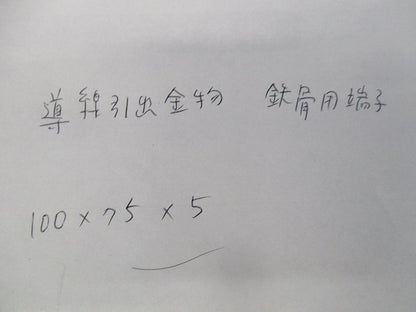 導線引出金物 鉄骨用端子
100×75×5